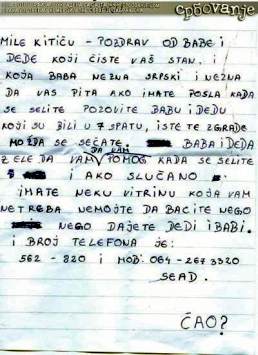 србовање
MILE KITIĆU - POZDRAV OD BABE I
DEDE KOJI ČISTE VAŠ STAN. I
KOJA BABA NEZNA SRPSKI I NEZNA
DA VAS PITA AKO IMATE POSLA KADA
SE SELITE POZOVITE BABU I DEDU
KOJI SU BILI U 7 SPATU, ISTE TE ZGRADE
MOŽDA SE SEĆATE. BABA I DEDA
ŽELE DA VAM DA VAM POMOG KADA SE SELITE
I AKO SLUČANO
IMATE NEKU VITRINU KOJA VAM
NETREBA NEMOJTE DA BACITE NEGO
NEGO DAJETE DEDI I BABI.
I BROJ TELEFONA JE:
562-820 I MOB: 064-267 3320
SEAD.
ĆAO?